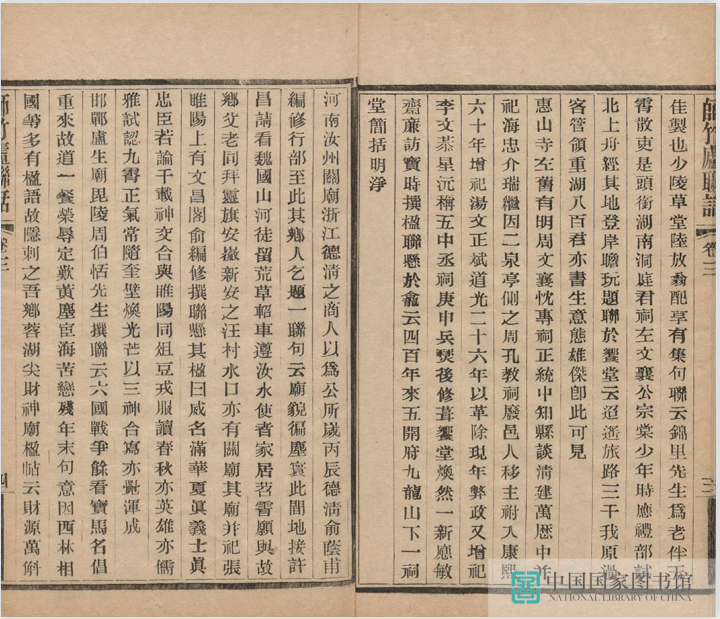 師竹廬聯話 卷三 三
佳製也少陵草堂陸放翁配享有集句聯云錦里先生爲老伴天
霄散吏是頭銜湖南洞庭君祠左文襄公宗棠少年時應禮部試
北上舟經其地登岸瞻玩題聯於饗堂云迢遙旅路三千我原過
客管領重湖八百君亦書生意態雄傑卽此可見
惠山寺左舊有明周文襄忱專祠正統中知縣談清建萬歷中并
祀海忠介瑞繼因二泉亭側之周孔教祠廢邑人移主祔入康熙
六十年增祀湯文正斌道光二十六年以革除現年弊政又增祀
李文恭星沅稱五中丞祠庚申兵燹後修葺饗堂煥然一新應敏
齋廉訪寶時撰楹聯懸於龕云四百年來五開府九龍山下一祠
堂簡括明淨
河南汝州關廟浙江德清之商人以爲公所歲丙辰德清俞蔭甫
編修行部至此其鄉人乞題一聯句云廟貌徧塵寰此間地接許
昌請看魏國山河徒留荒草軺車遵汝水使者家居苕霅願與故
鄉父老同拜靈旗安徽新安之汪村水口亦有關廟其廟并祀張
睢陽上有文昌閣俞編修撰聯懸其楹曰威名滿華夏眞義士眞
忠臣若論千載神交合與睢陽同俎豆戎服讀春秋亦英雄亦儒
雅試認九霄正氣常隨奎壁煥光芒以三神合寫亦覺渾成
邯鄲盧生廟毘陵周伯恬先生撰聯云六國戰爭餘看寶馬名倡
重來故道一餐榮辱定歎黃塵宦海苦戀殘年末句意因西林相
國等多有楹語故隱刺之吾鄉蓉湖尖財神廟楹帖云財源萬斛
師竹廬聯話 卷三 四
中国国家图书馆
NATIONAL LIBRARY OF CHINA